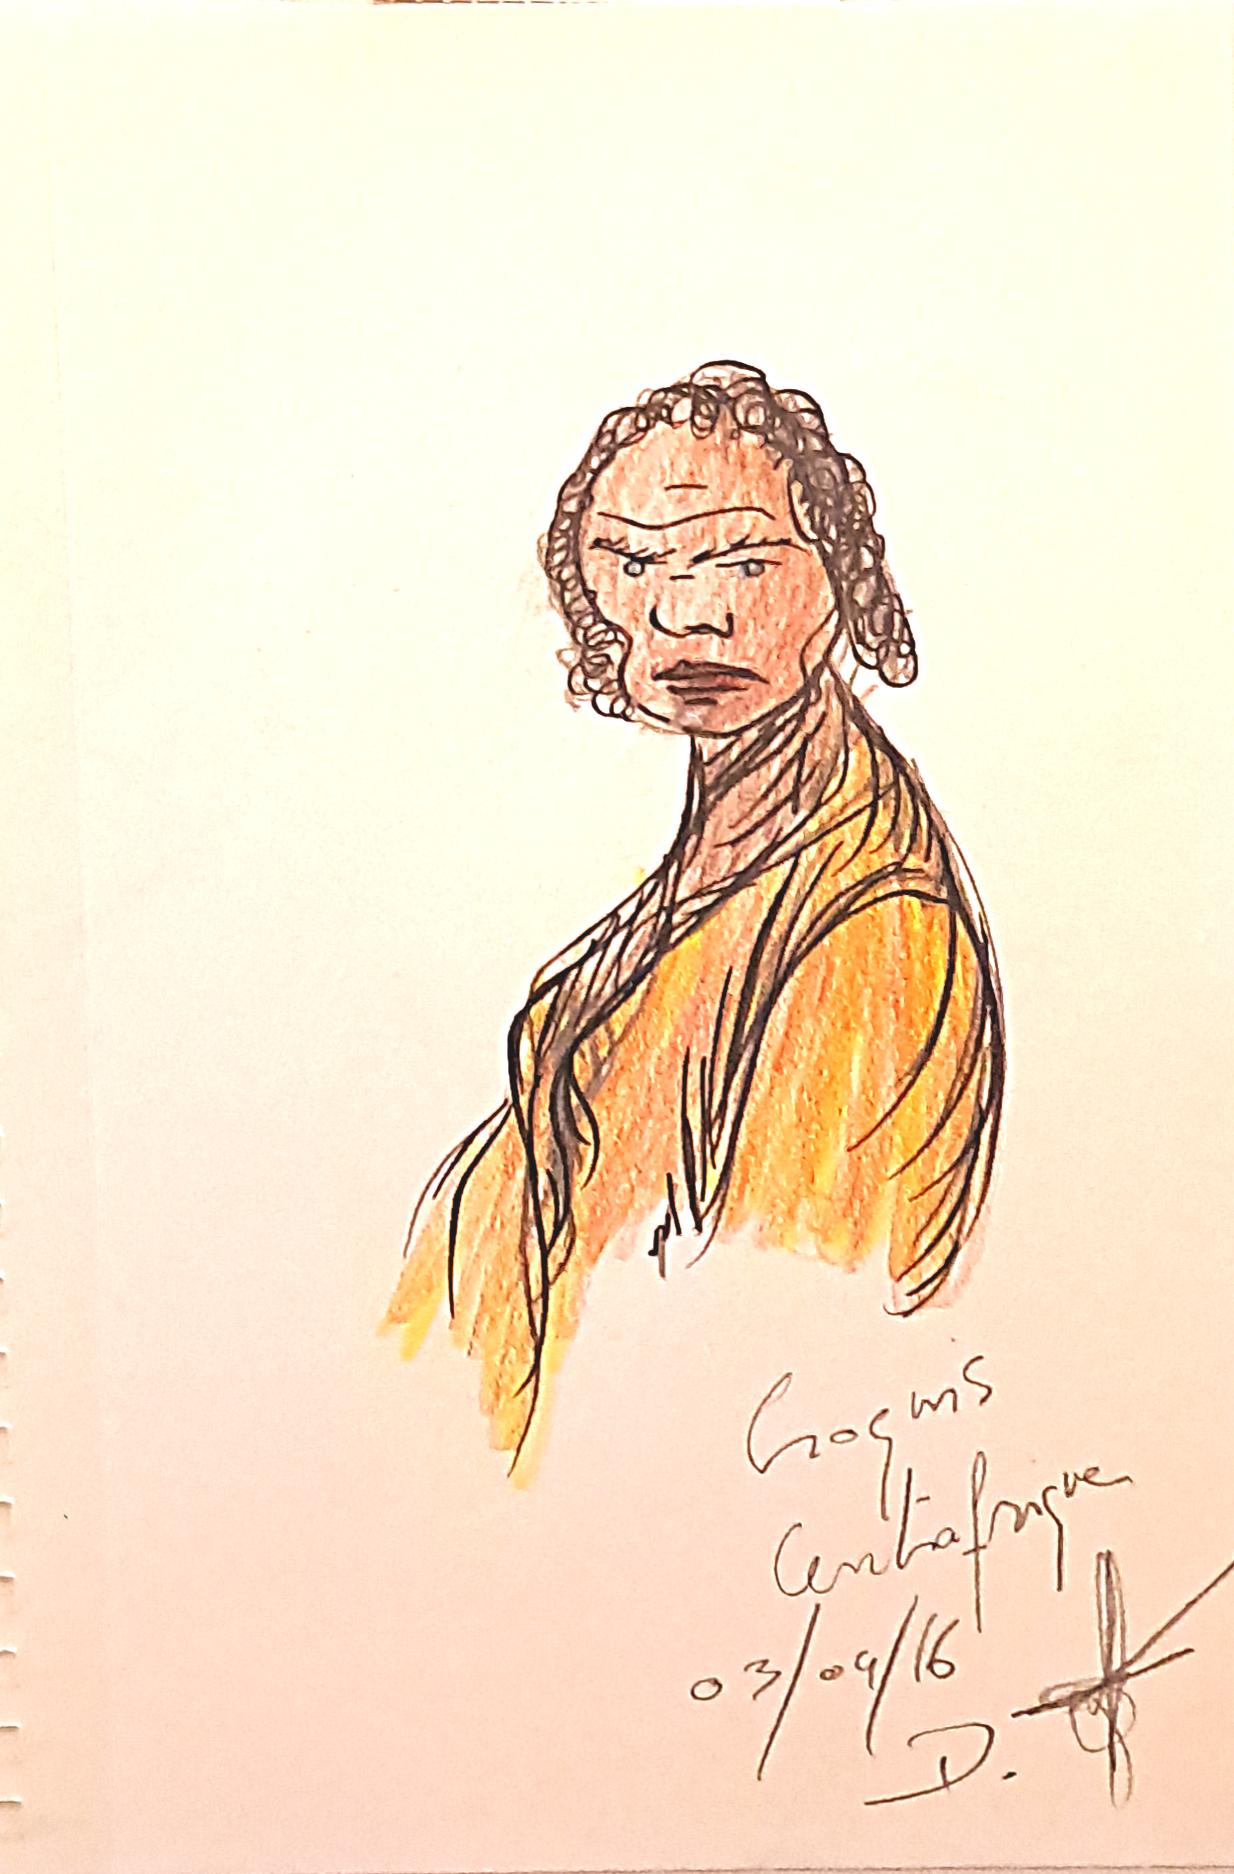 Croquis
Centrafrique
03/04/16
D.